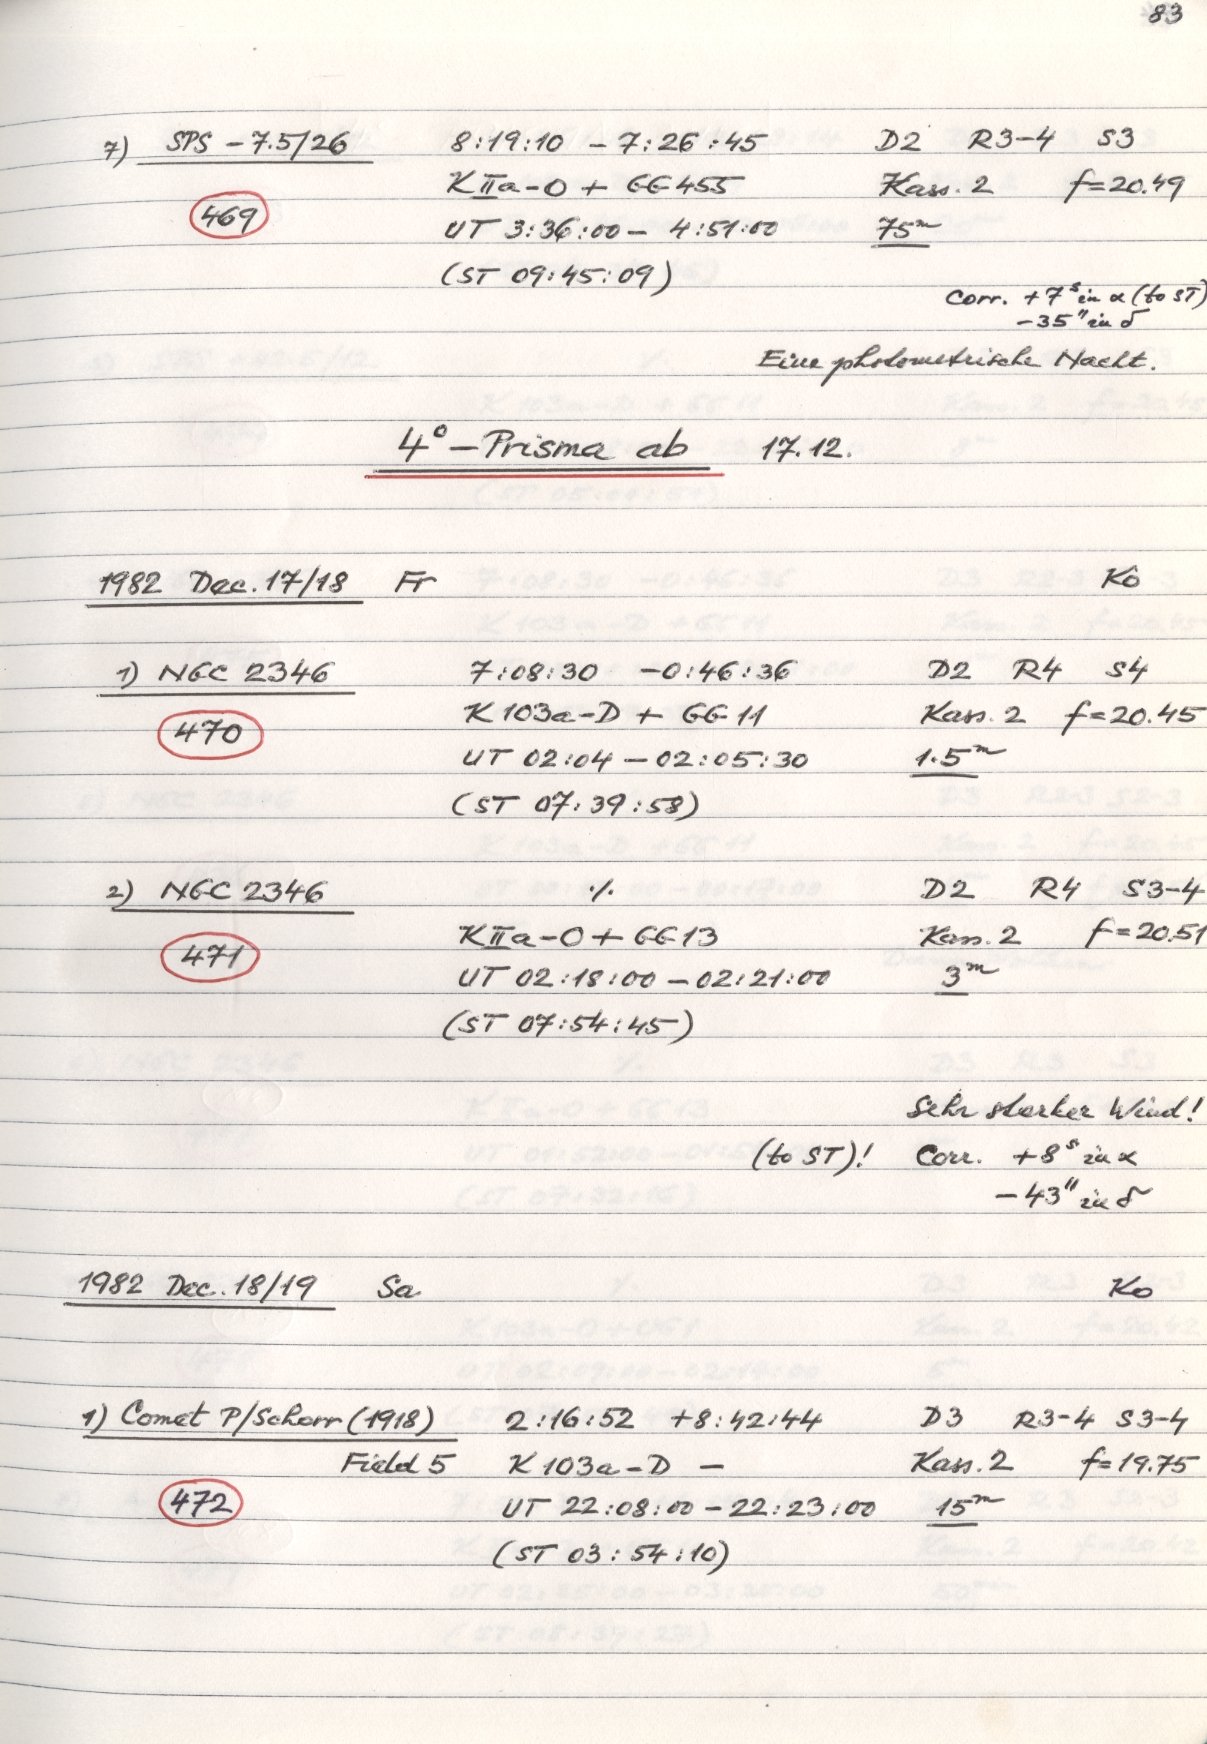 83
7) SPS -7.5/26 8:19:10 -7:26:45 D2 R3-4 S3
K IIa-O + GG455 Kass. 2 f=20.49
469 UT 3:36:00 - 4:51:00 75m
(ST 09:45:09)
Corr. +7s in α (to ST)
-35" in δ
Eine photometrische Nacht.
4° - Prisma ab 17.12.
1982 Dec. 17/18 Fr Ko
1) NGC 2346 7:08:30 -0:46:36 D2 R4 S4
470 K 103a-D + GG 11 Kass. 2 f=20.45
UT 02:04 - 02:05:30 1.5m
(ST 07:39:58)
2) NGC 2346 ·/. D2 R4 S3-4
471 K IIa-O + GG13 Kass. 2 f=20.51
UT 02:18:00 - 02:21:00 3m
(ST 07:54:45)
Sehr starker Wind!
(to ST)! Corr. +8s in α
-43" in δ
1982 Dec. 18/19 Sa Ko
1) Comet P/Schorr (1918) 2:16:52 +8:42:44 D3 R3-4 S3-4
Field 5 K 103a-D - Kass. 2 f=19.75
472 UT 22:08:00 - 22:23:00 15m
(ST 03:54:10)